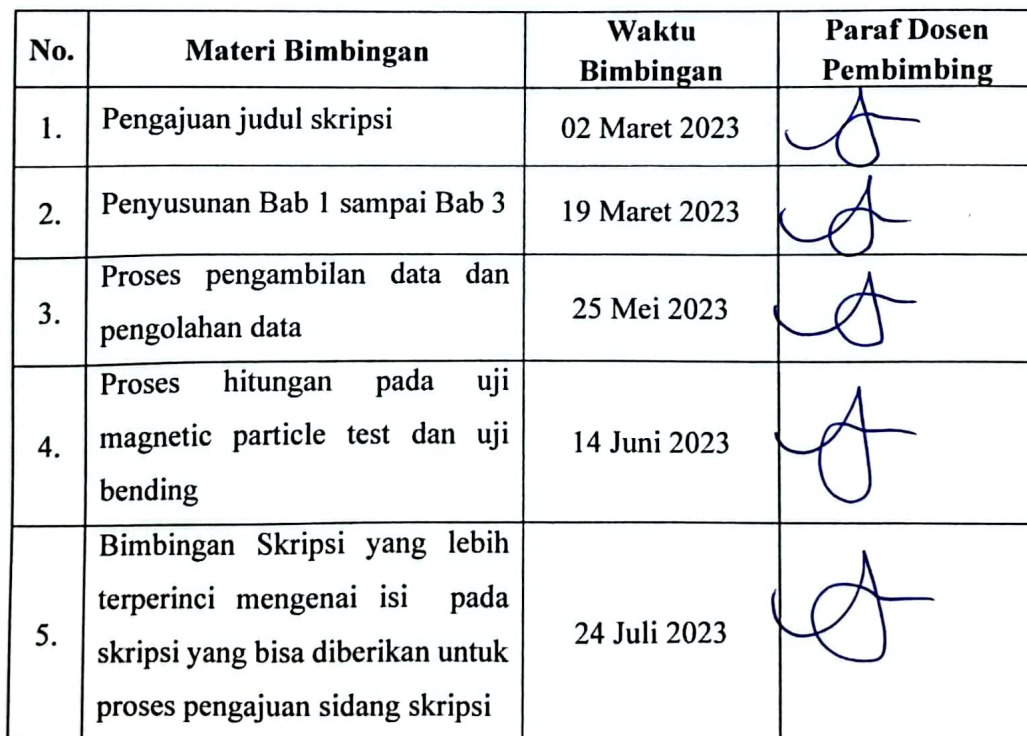 No. Materi Bimbingan Waktu Bimbingan Paraf Dosen Pembimbing
1. Pengajuan judul skripsi 02 Maret 2023
2. Penyusunan Bab 1 sampai Bab 3 19 Maret 2023
Proses pengambilan data dan
3. pengolahan data 25 Mei 2023
Proses hitungan pada uji
4. magnetic particle test dan uji 14 Juni 2023
bending
Bimbingan Skripsi yang lebih
terperinci mengenai isi pada
5. skripsi yang bisa diberikan untuk 24 Juli 2023
proses pengajuan sidang skripsi